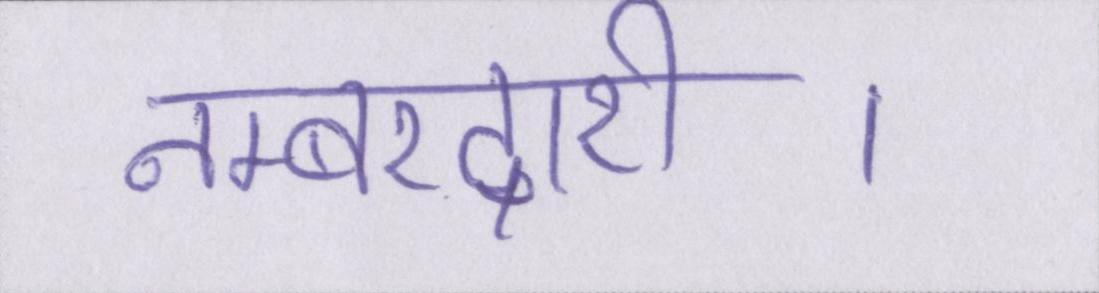 नम्बरदारी ।